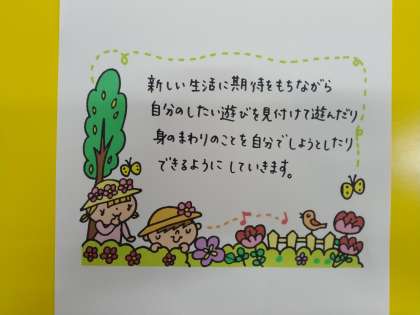 新しい生活に期待をもちながら
自分のしたい遊びを見付けて遊んだり
身のまわりのことを自分でしようとしたり
できるようにしていきます。